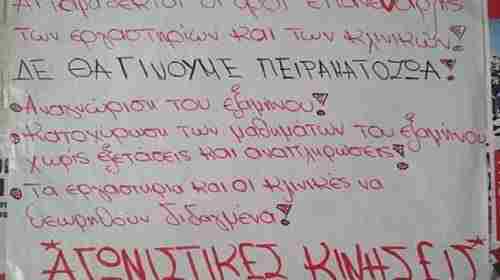 Απαράδεκτοι οι όροι επανέναρξης
των εργαστηρίων και των κλινικών!
ΔΕ ΘΑ ΓΙΝΟΥΜΕ ΠΕΙΡΑΜΑΤΟΖΩΑ!
• Αναγνώριση του εξαμήνου!
• Κατοχύρωση των μαθημάτων του εξαμήνου
χωρίς εξετάσεις και αναπληρώσεις!
• Τα εργαστηρια και οι κλινικές να
θεωρηθούν διδαγμένα!
*ΑΓΩΝΙΣΤΙΚΕΣ ΚΙΝΗΣΕΙΣ*